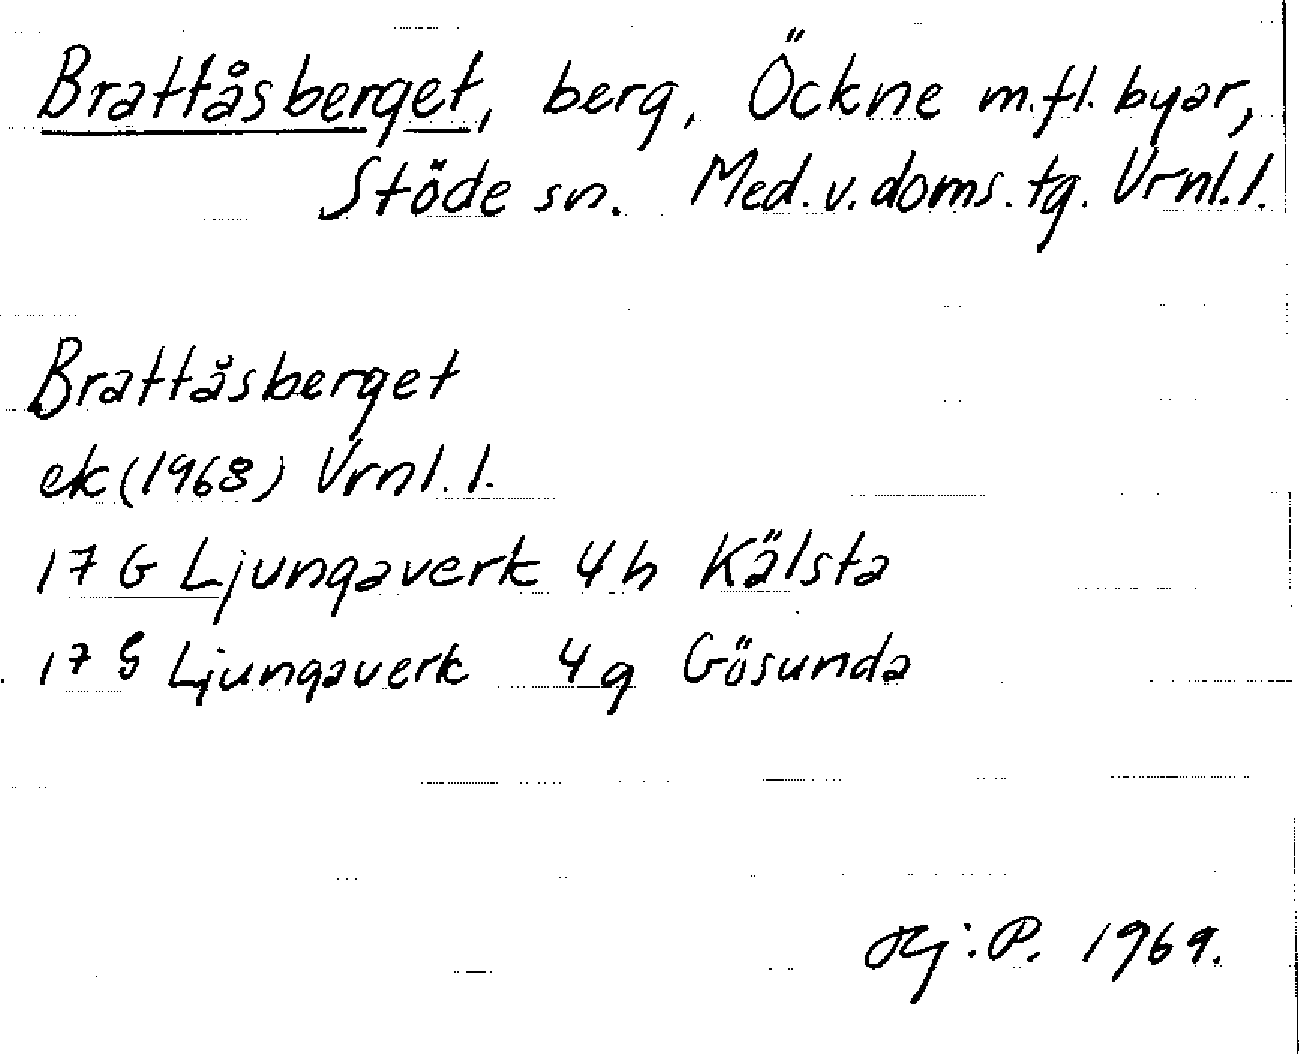 Brattåsberget, berg, Öckne m.fl. byar,
Stöde sn. Med. v. doms. tg. Vrnl. l.
Brattåsberget
ek (1968) Vrnl. l.
17 G Ljungaverk 4 h Kälsta
17 G Ljungaverk 4 g Gösunda
Hj: P. 1969.